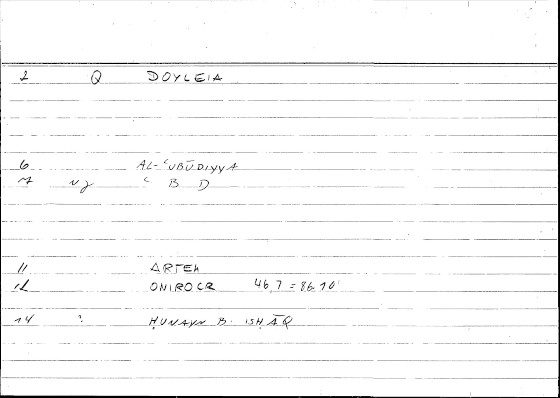 2 Q DOYLEIA
6 AL-ʿUBŪDIYYA
7 ʿ B D
11 ARTEM
12 ONIROCR 46,7 = 86.10
14 ? ḤUNAYN B. ISḤĀQ